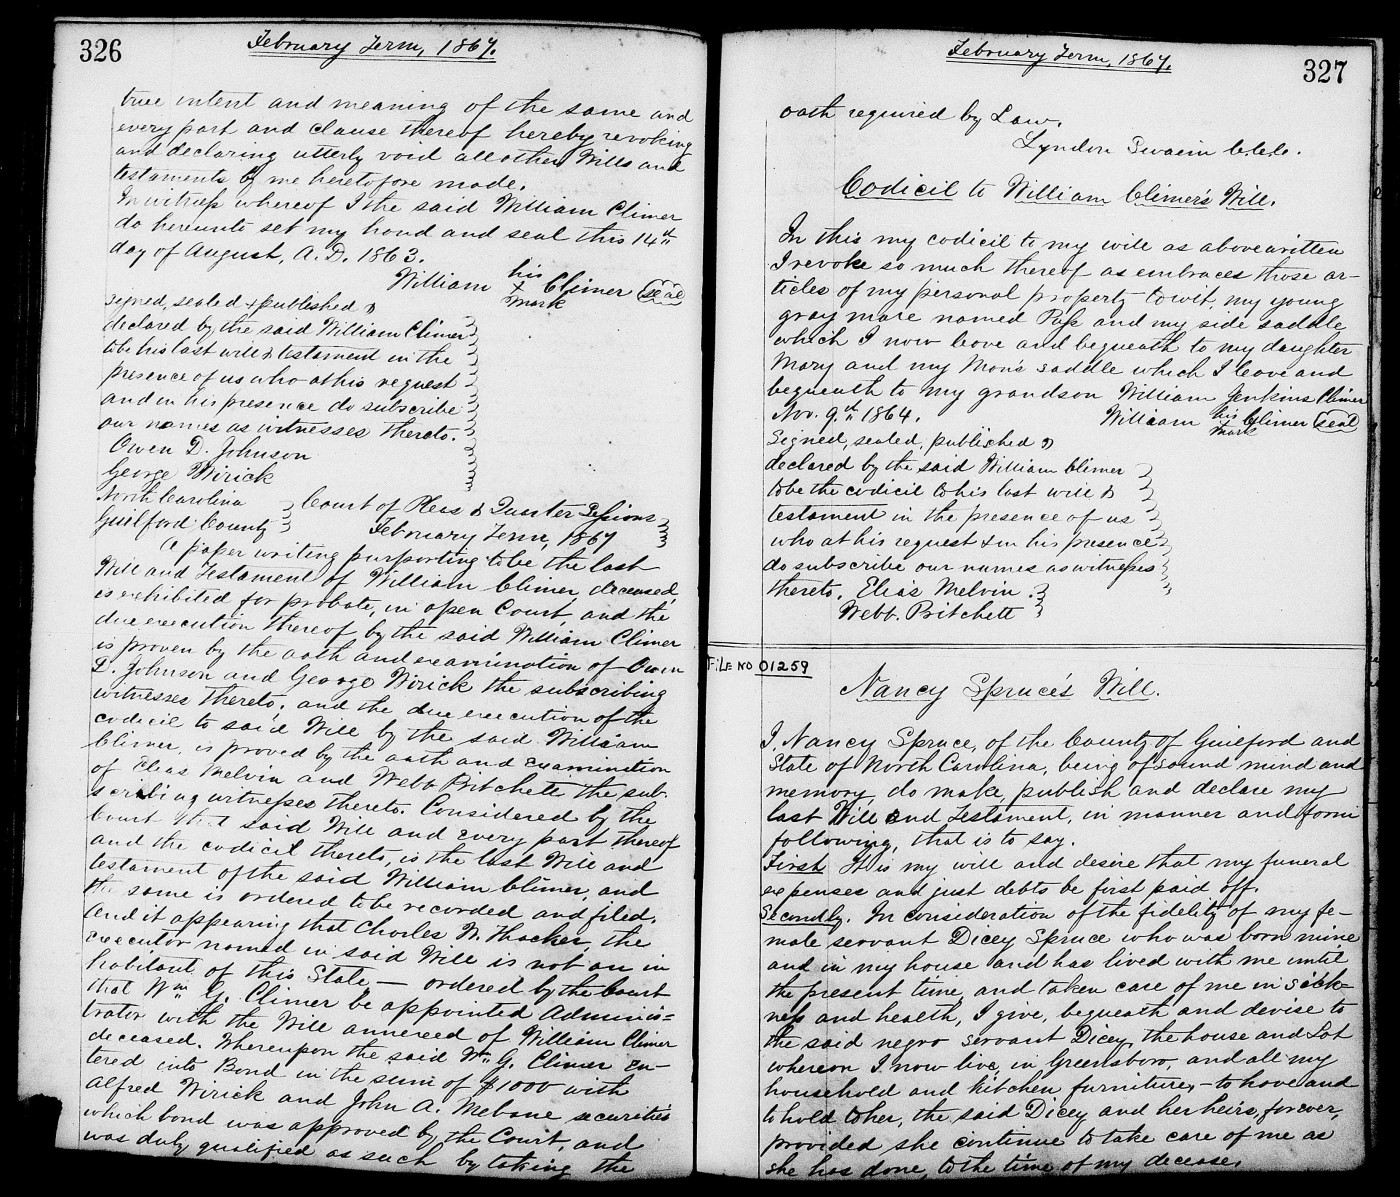 326
February Term, 1867.
true intent and meaning of the same and
every part and clause thereof hereby revoking
and declaring utterly void all other Wills and
testaments by me heretofore made.
In witness whereof I the said William Climer
do hereunto set my hand and seal this 14th
day of August, A.D. 1863.
William his x mark Climer (seal)
signed, sealed & published &
declared by the said William Climer
to be his last will & testament in the
presence of us who at his request
and in his presence do subscribe
our names as witnesses thereto.
Owen D. Johnson
George Wirick
North Carolina
Guilford County
Court of Pleas & Quarter Sessions
February Term, 1867
A paper writing purporting to be the last
Will and Testament of William Climer, deceased,
is exhibited for probate, in open Court, and the
due execution thereof by the said William Climer
is proven by the oath and examination of Owen
D. Johnson and George Wirick the subscribing
witnesses thereto. and the due execution of the
codicil to said Will by the said William
Climer, is proved by the oath and examination
of Elias Melvin and Webb Pritchett the sub-
scribing witnesses thereto. Considered by the
Court that said Will and every part thereof
and the codicil thereto, is the last Will and
testament of the said William Climer, and
the same is ordered to be recorded and filed.
And it appearing that Charles N. Thacker, the
executor named in said Will is not an in
habitant of this State — ordered by the Court
that Wm G. Climer be appointed Adminis=
trator with the Will annexed of William Climer
deceased. Whereupon the said Wm G. Climer en-
tered into Bond in the sum of $1000 with
Alfred Wirick and John A. Mebane securities
which bond was approved by the Court, and
was duly qualified as such by taking the
February Term, 1867.
327
oath required by Law.
Lyndon Swaim C.C.C.
Codicil to William Climer's Will.
In this my codicil to my will as above written
I revoke so much thereof as embraces those ar-
ticles of my personal property to wit, my young
gray mare named Pap and my side saddle
which I now leave and bequeath to my daughter
Mary and my Man's saddle which I leave and
bequeath to my grandson William Jenkins Climer
Nov. 9th 1864.
William his x mark Climer (seal)
Signed, sealed, published &
declared by the said William Climer
to be the codicil to his last will &
testament in the presence of us
who at his request & in his presence
do subscribe our names as witnesses
thereto. Elias Melvin.
Webb Pritchett
FILE NO 01259
Nancy Spruce's Will.
I, Nancy Spruce, of the County of Guilford and
State of North Carolina, being of sound mind and
memory, do make, publish and declare my
last Will and Testament, in manner and form
following, that is to say.
First It is my will and desire that my funeral
expenses and just debts be first paid off.
Secondly. In consideration of the fidelity of my fe-
male servant Dicey Spruce who was born mine
and in my house and has lived with me until
the present time, and taken care of me in sick-
ness and health, I give, bequeath and devise to
the said negro servant Dicey, the house and Lot
whereon I now live, in Greensboro, and all my
household and kitchen furniture,- to have and
to hold to her, the said Dicey and her heirs, forever,
provided she continue to take care of me as
she has done, to the time of my decease.